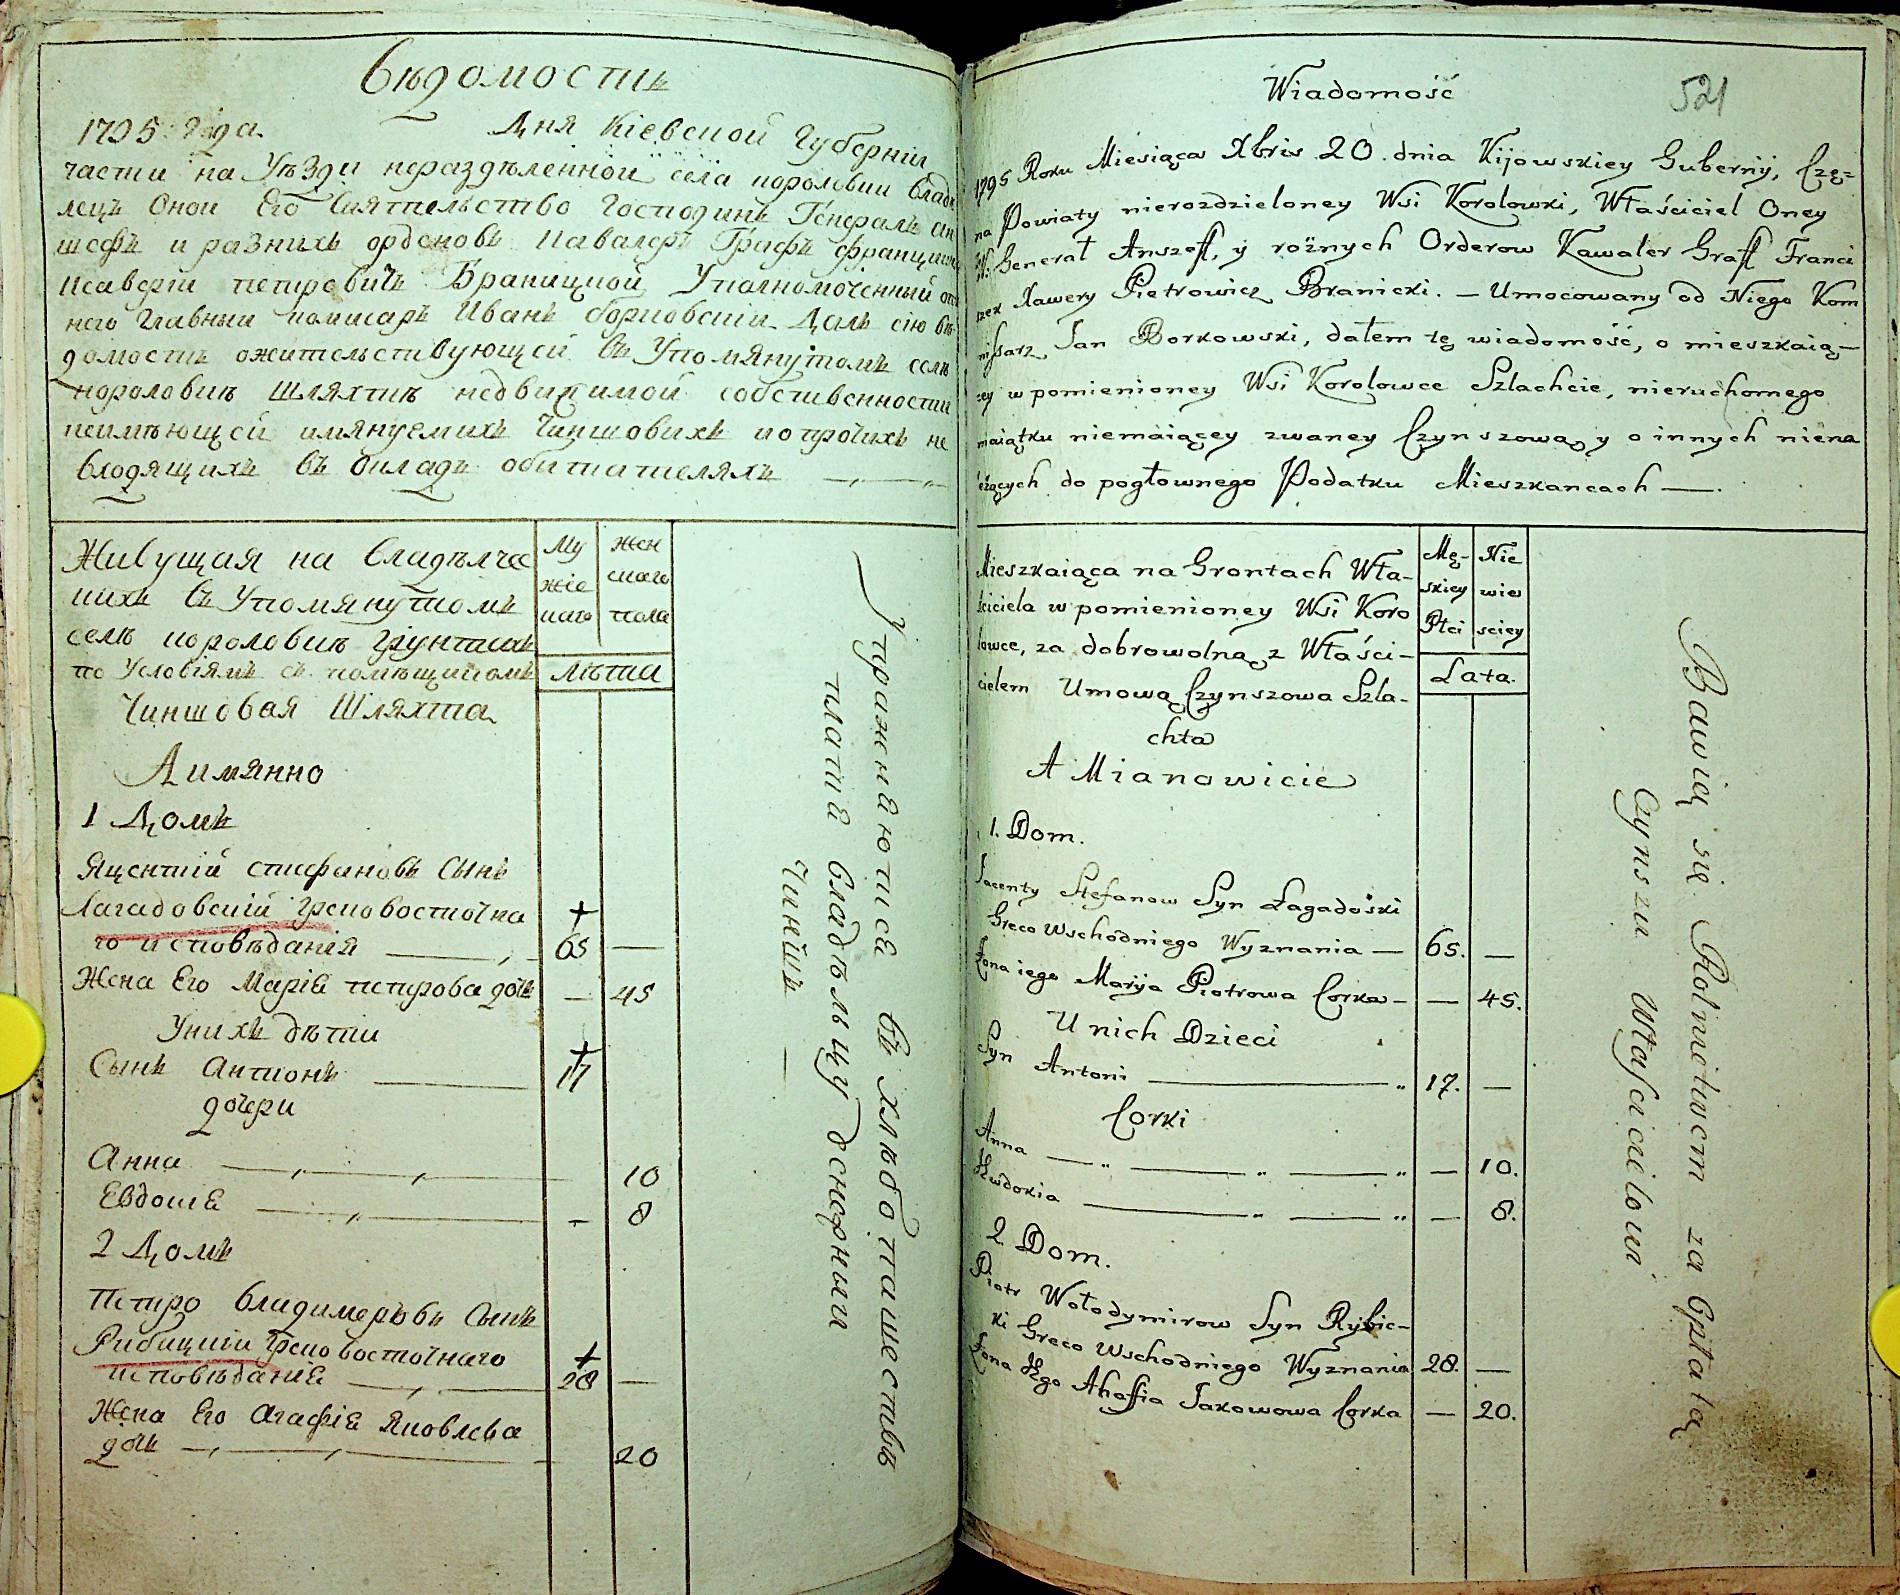 Вѣдомость
1795: Года. Дня Кіевской Губерніи
части на Уѣзди нераздѣленной села королювки Владѣ
лецъ Оной Его Сиятельство Господинъ Генералъ ан
шефъ и разнихъ орденовъ Кавалеръ Графъ францишк
Ксаверій петровичъ Браницкой Уполномоченный от
него главный комисаръ Иванъ борковскій Далъ сію вѣ
домость ожительствующей въ Упомянутомъ селѣ
королювкѣ шляхтѣ недвижимой собственности
неимѣющей имянуемихъ Чиншовихъ и опротчихъ не
входящихъ въ окладъ обитателяхъ
Живущая на владѣлчес
кихъ въ Упомянутомъ
селѣ королювкѣ Грунтахъ
по Условіямъ съ помѣщикомъ
Чиншовая Шляхта
Му
жес
каго
жен
скаго
пола
Лѣта
А имянно
1 Домъ
Яцентій стефановъ Сынъ
Лагадовскій Грековосточна
го исповѣданія — + 65 —
Жена Его Маріѣ петрова дочь — 45
Унихъ дѣти
Сынъ Антонъ — + 17
дочери
Анна — 10
Евдокіѣ — 8
2 Домъ
Петро Владимеровъ Сынъ
Рибицкій Грековосточнаго
исповѣданіѣ — + 28 —
Жена Его Агафіѣ Яковлева
дочь — 20
Упражняютися въ хлѣбопашествѣ
платя владѣльцу денежный
Чиншъ —
Wiadomość
521
1795 Roku Miesiąca Xbris 20. dnia Kijowskiey Guberniy, Czę=
na Powiaty nierozdzieloney Wsi Korolowki, Właściciel Oney
W: Generał Anszeff, y rożnych Orderow Kawaler Graff Franci
szek Xawery Pietrowicz Branicki. — Umocowany od Niego Kom
missarz Jan Borkowski, dałem tę wiadomość, o mieszkaią—
cey w pomienioney Wsi Korolowce Szlachcie, nieruchomego
maiątku niemaiącey zwaney Czynszową, y o innych niena
leżących do pogłownego Podatku Mieszkancach —.
Mieszkaiąca na Grontach Wła-
ściciela w pomienioney Wsi Koro
lowce, za dobrowolną z Właści-
cielem Umową Czynszowa Szla-
chta
Mę-
skiey
Płci
Nie
wie
sciey
Lata.
A Mianowicie
1. Dom.
Jacenty Stefanow Syn Łagadoski
Greco Wschodniego Wyznania — 65. —
Zona iego Maryja Piotrowa Corka — — 45.
U nich Dzieci
Syn Antoni — 17. —
Corki
Anna — — 10.
Ewdokia — — 8.
2. Dom.
Piotr Wołodymirow Syn Rybic-
ki Greco Wschodniego Wyznania 28. —
Zona Jego Ahaffia Jakowowa Corka — 20.
Bawią się Rolnictwem za Opłatą
Czynszu Właścicielowi